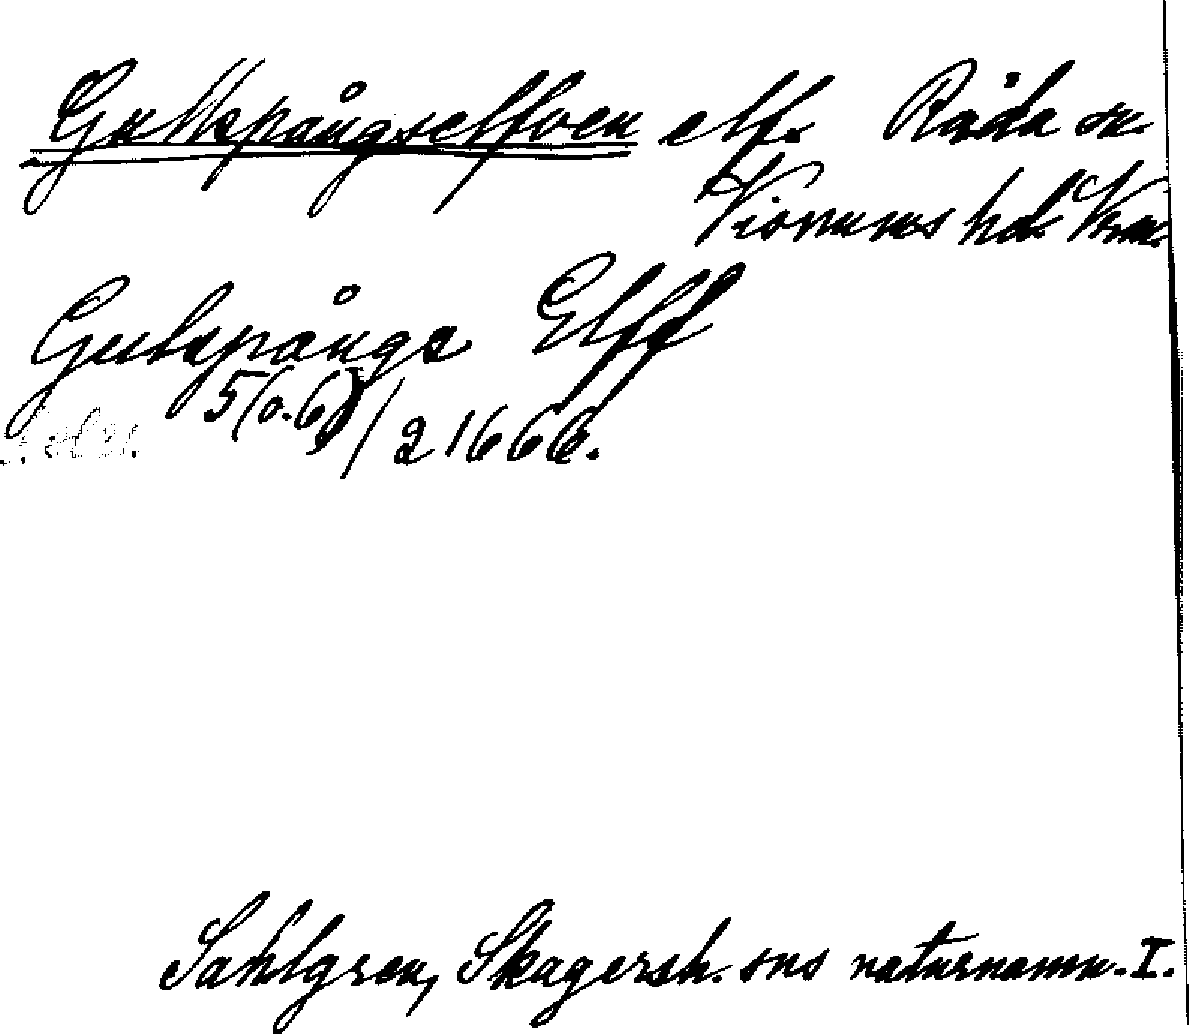 Gullspångselfven elf. Råda sn.
Visnums hd. Vrm.
Gulspångs Elff
5(o.6)/2 1666.
Sahlgren, Skagersh. sns naturnamn. I.